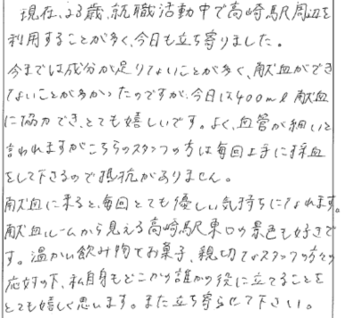 現在、23歳、就職活動中で高崎駅周辺を
利用することが多く、今日も立ち寄りました。
今までは成分が足りないことが多く、献血ができ
ないことが多かったのですが、今日は400mℓ献血
に協力でき、とても嬉しいです。よく、血管が細いと
言われますがこちらのスタッフの方は毎回上手に採血
をして下さるので抵抗がありません。
献血に来ると、毎回とても優しい気持ちになれます。
献血ルームから見える高崎駅東口の景色も好きで
す。温かい飲み物やお菓子、親切なスタッフの方々の
応対の下、私自身もどこかの誰かの役に立てることを
とても嬉しく思います。また立ち寄らせて下さい。